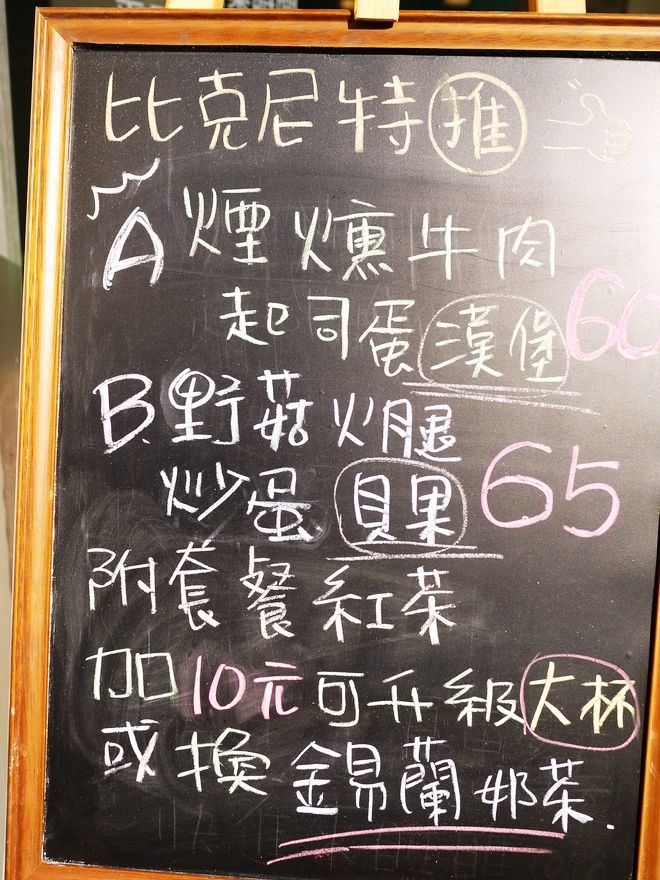 比克尼特推
A 煙燻牛肉
起司蛋漢堡 60
B. 野菇火腿
炒蛋貝果 65
附套餐紅茶
加10元可升級大杯
或換錫蘭奶茶.